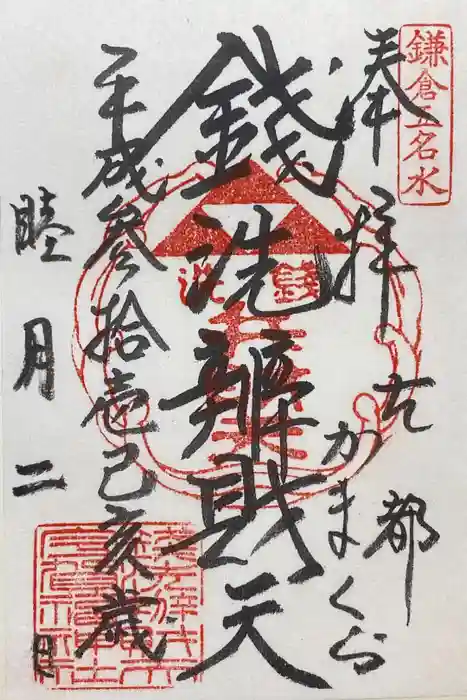 鎌倉五名水
奉拝
古都
かまくら
銭洗
錢洗辨財天
平成参拾壱己亥歳
睦月二日